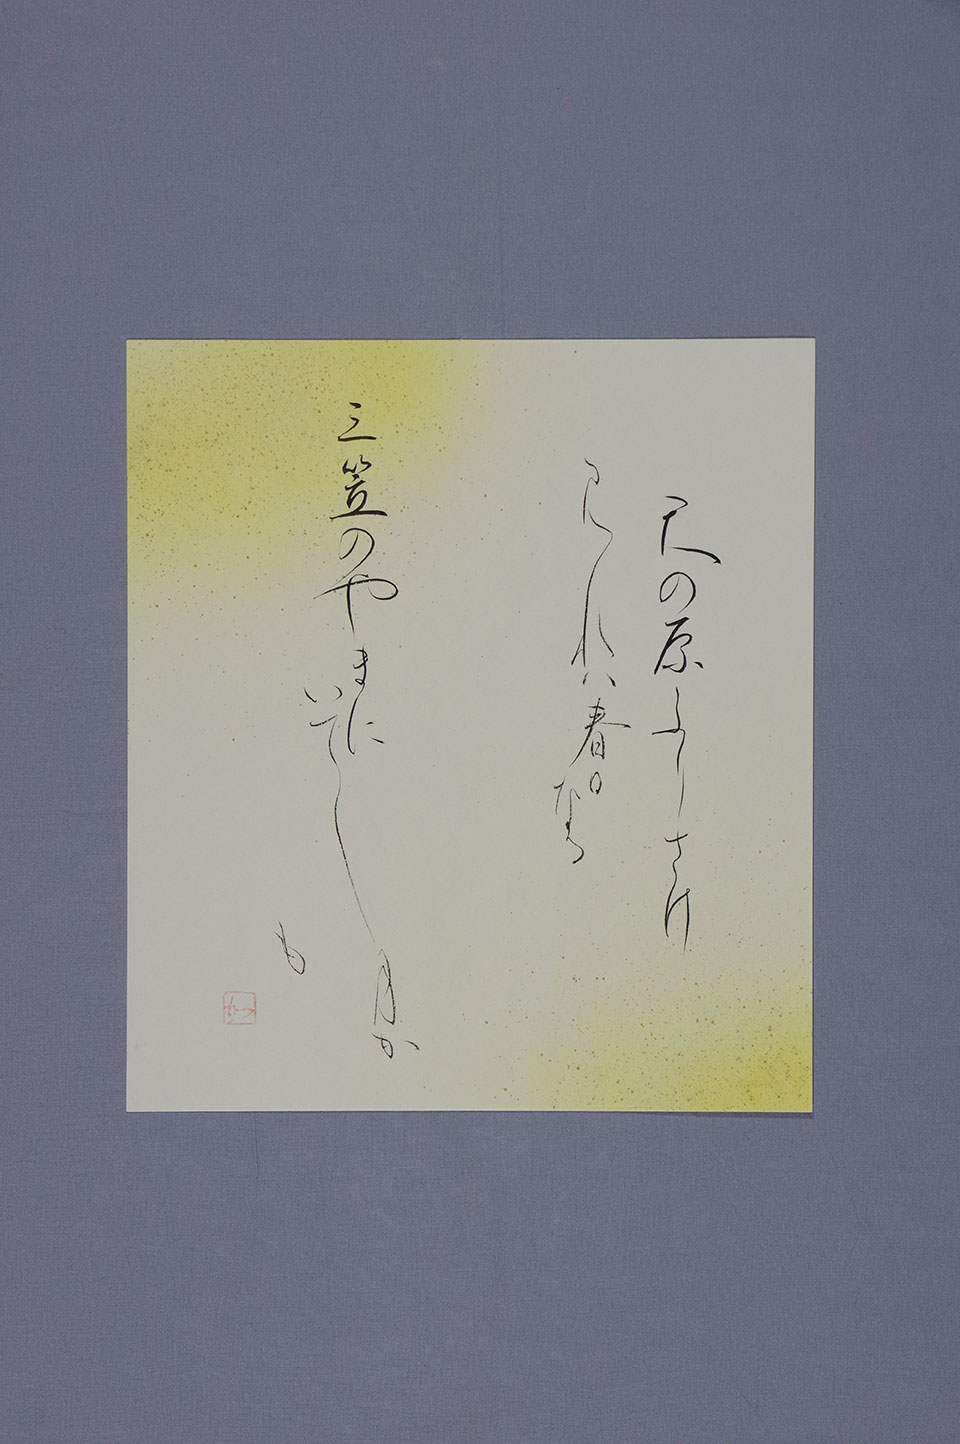 天の原ふりさけ
見れは春日
なる
三笠のやまに
いてし月か
も